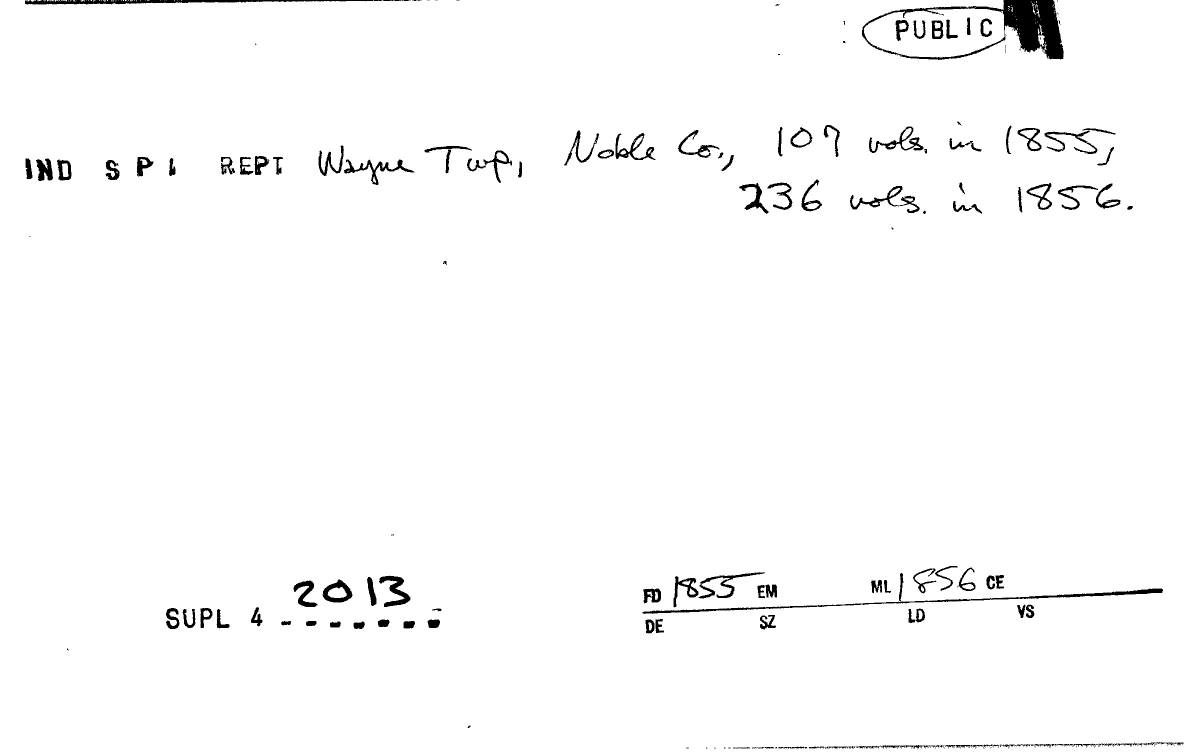 PUBLIC
IND S P I REPT Wayne Twp, Noble Co., 107 vols. in 1855,
236 vols. in 1856.
2013
SUPL 4 -------
FD 1855 EM ML 1856 CE
DE SZ LD VS